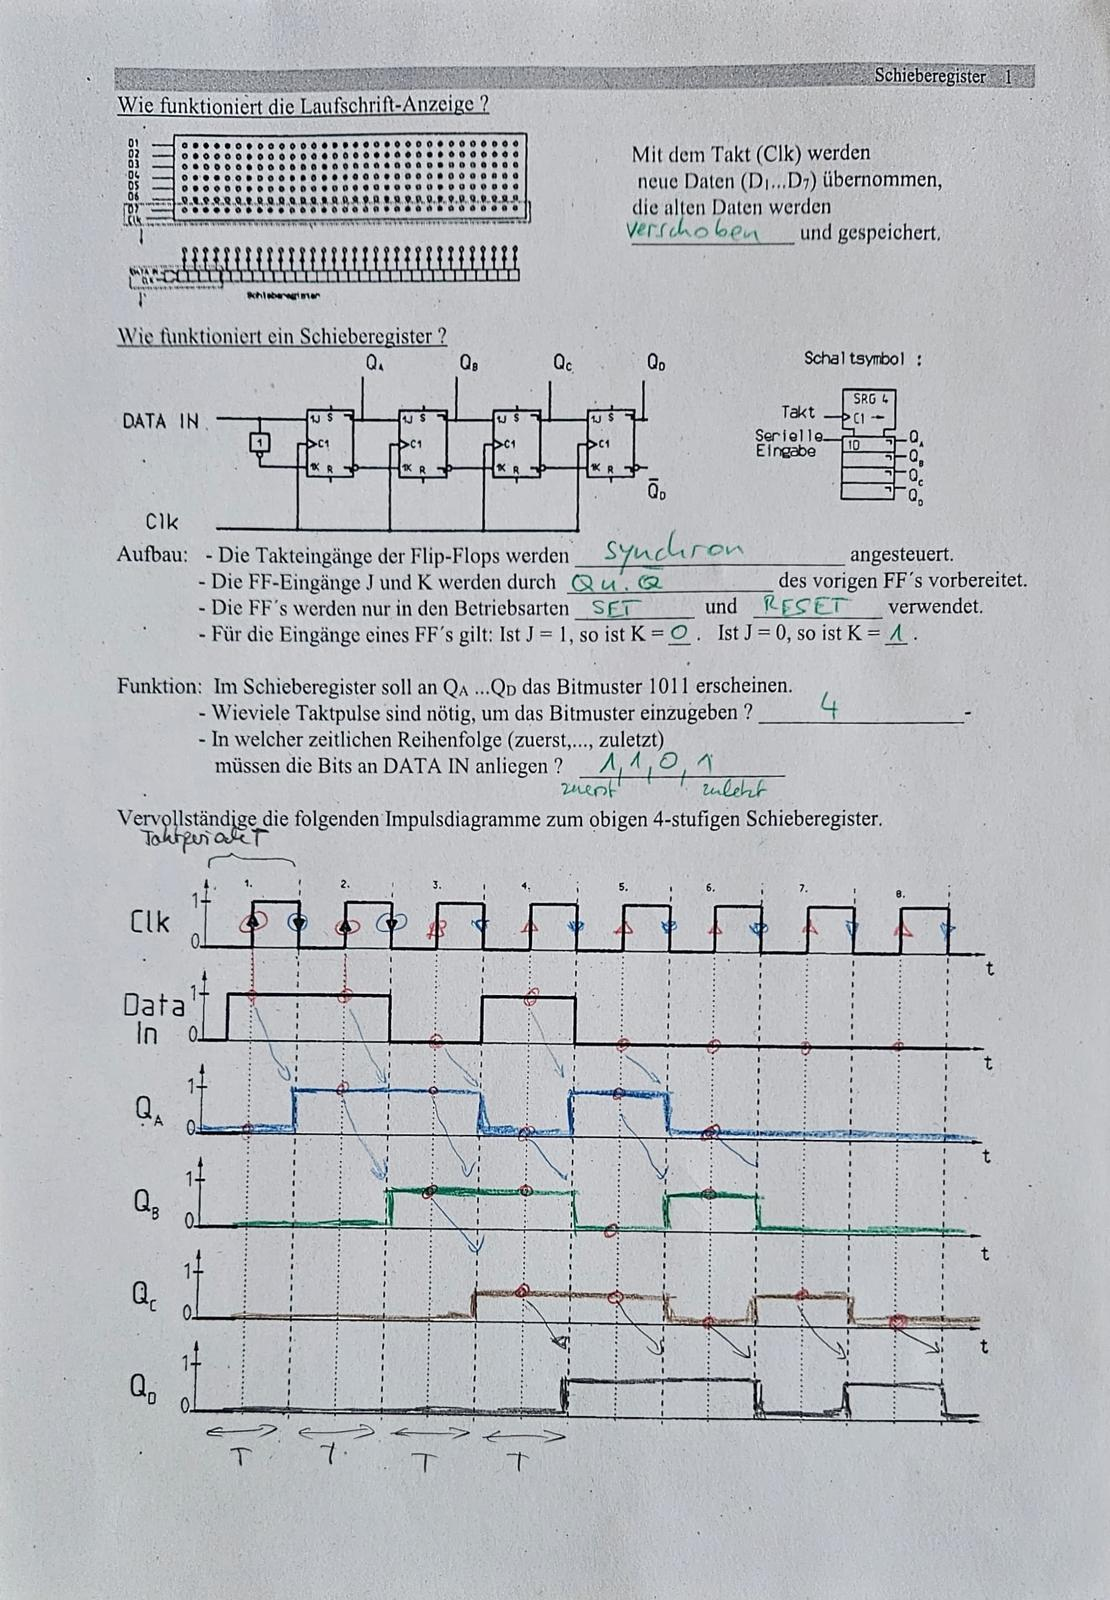 Schieberegister 1
Wie funktioniert die Laufschrift-Anzeige ?
D1
D2
D3
D4
D5
D6
D7
CLK
Mit dem Takt (Clk) werden
neue Daten (D1...D7) übernommen,
die alten Daten werden
verschoben und gespeichert.
DATA IN
Schieberegister
Wie funktioniert ein Schieberegister ?
QA QB QC QD
Schaltsymbol :
DATA IN
1
1J S 1J S 1J S 1J S
C1 C1 C1 C1
1K R 1K R 1K R 1K R
Q̅D
Clk
SRG 4
Takt C1 →
Serielle Eingabe 1D
QA
QB
QC
QD
Aufbau: - Die Takteingänge der Flip-Flops werden synchron angesteuert.
- Die FF-Eingänge J und K werden durch Q u. Q̅ des vorigen FF´s vorbereitet.
- Die FF´s werden nur in den Betriebsarten SET und RESET verwendet.
- Für die Eingänge eines FF´s gilt: Ist J = 1, so ist K = 0. Ist J = 0, so ist K = 1.
Funktion: Im Schieberegister soll an QA ...QD das Bitmuster 1011 erscheinen.
- Wieviele Taktpulse sind nötig, um das Bitmuster einzugeben ? 4 -
- In welcher zeitlichen Reihenfolge (zuerst,..., zuletzt)
müssen die Bits an DATA IN anliegen ? 1, 1, 0, 1
zuerst zuletzt
Vervollständige die folgenden Impulsdiagramme zum obigen 4-stufigen Schieberegister.
Taktperiode T
1. 2. 3. 4. 5. 6. 7. 8.
Clk 1 0 t
Data In 1 0 t
QA 1 0 t
QB 1 0 t
QC 1 0 t
QD 1 0
T T T T